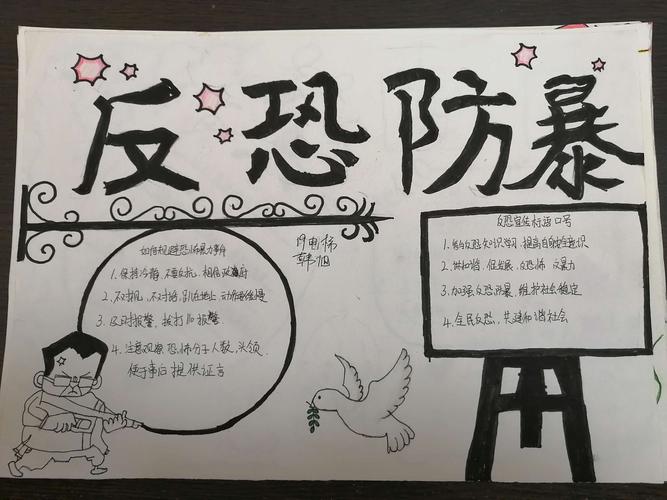 反恐防暴
如何规避恐怖暴力事件
1. 保持冷静,不要反抗,相信政府
2. 不对视,不对话,趴在地上,动作要缓慢
3. 及时报警,拨打110报警.
4. 注意观察恐怖分子人数,头领,
便于事后提供证言
19电梯
韩旭
反恐宣传标语口号
1. 反恐知识学习,提高自防意识
2. 共和谐,促发展,反恐怖
3. 加强反恐防暴,维护社会稳定
4. 全民反恐,共建和谐社会